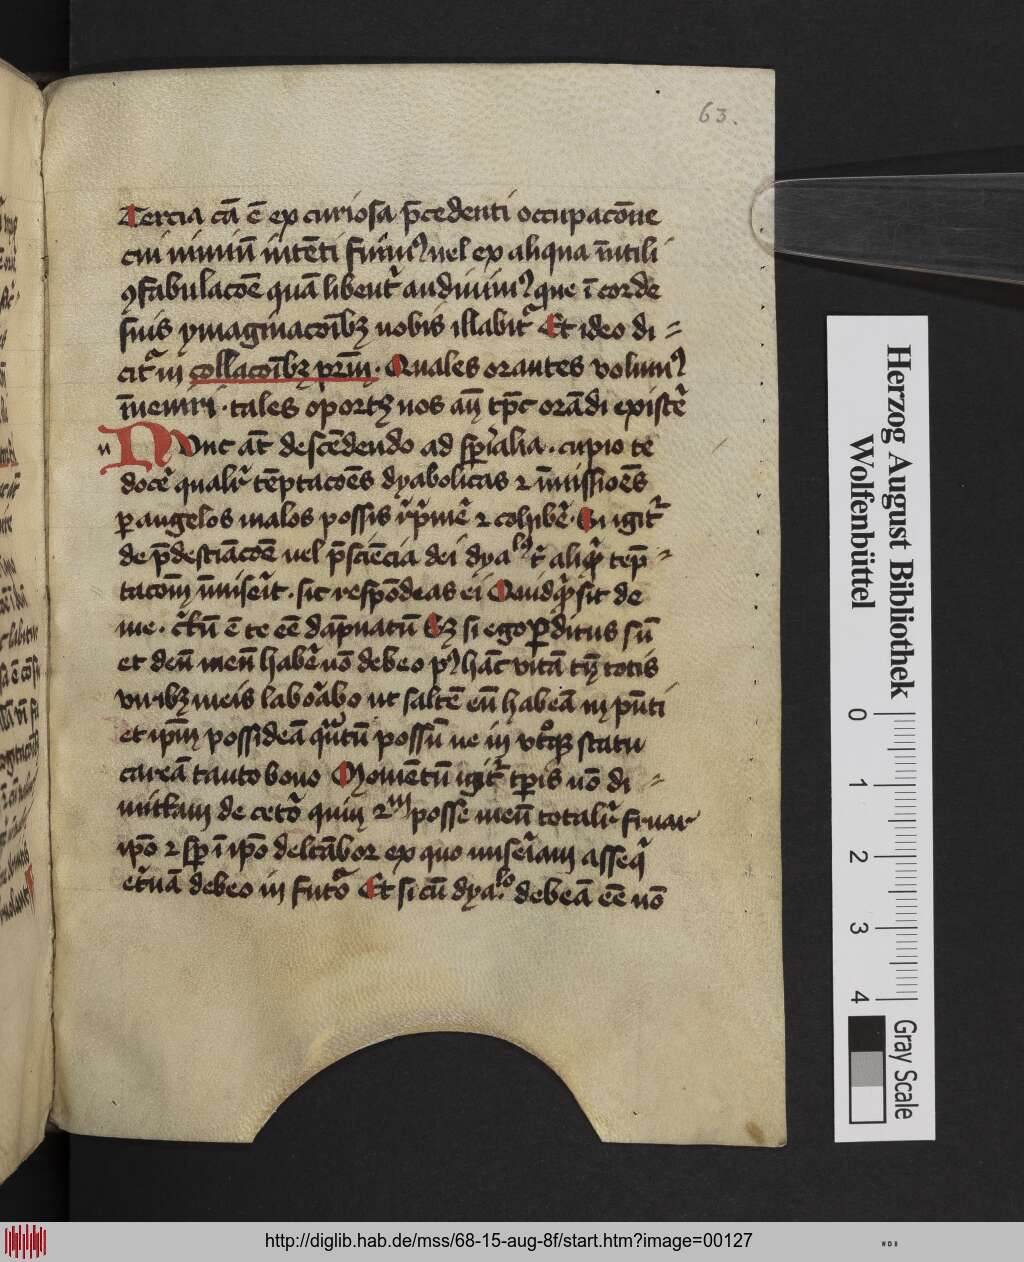 63.
Tercia cā ē ex curiosa p̄cedenti occupacōne
cui nimiū intēti fuim⁹ uel ex aliqua īutili
ꝯfabulacōe quā libent̾ audiuim⁹ que ī corde
suis ymaginacōibꝫ nobis illabit̾ Et ideo di=
cit̾ in collacōibꝫ prīm · Quales orantes volum⁹
īueniri · tales oportꝫ nos an̄ tp̄c orādi exist̾e
n
Nunc āt descēdendo ad sp̄ialia · cupio te
doc̾e qualit̾ tēptacōes dyabolicas ⁊ īmissiōes
ꝑ angelos malos possis rep̄me̾ ⁊ cohibe̾ · Cū igit̾
de p̄destiācōe uel p̄sciēcia dei dyalꝰ t̾ aliq̄ tep̄=
tacōm īmise̾it · sic respōdeas ei Quidq̄ sit de
me · c̾tū ē te eē dāpnatū Sꝫ si ego ꝑditus sū
et deū meū habe̾ nō debeo p⁹ hāc vitā tn̄ totis
viribꝫ meis labōabo ut saltē eū habeā in p̄nti
et ip̄m possideā q̄ntū possū ne in vt°qꝫ statu
careā tanto bono Momētū igit̾ tp̄is nō di=
mittam de cet̾o quin ⁊m posse meū totalit̾ fruar
ip̄o ⁊ sp̄ ī ip̄o delc̄abor ex quo mise̾iam asseq̄
et̾nā debeo in futo̾ Et si cū dya.lo debeā eē nō
Herzog August Bibliothek
Wolfenbüttel
0 1 2 3 4
Gray Scale
http://diglib.hab.de/mss/68-15-aug-8f/start.htm?image=00127